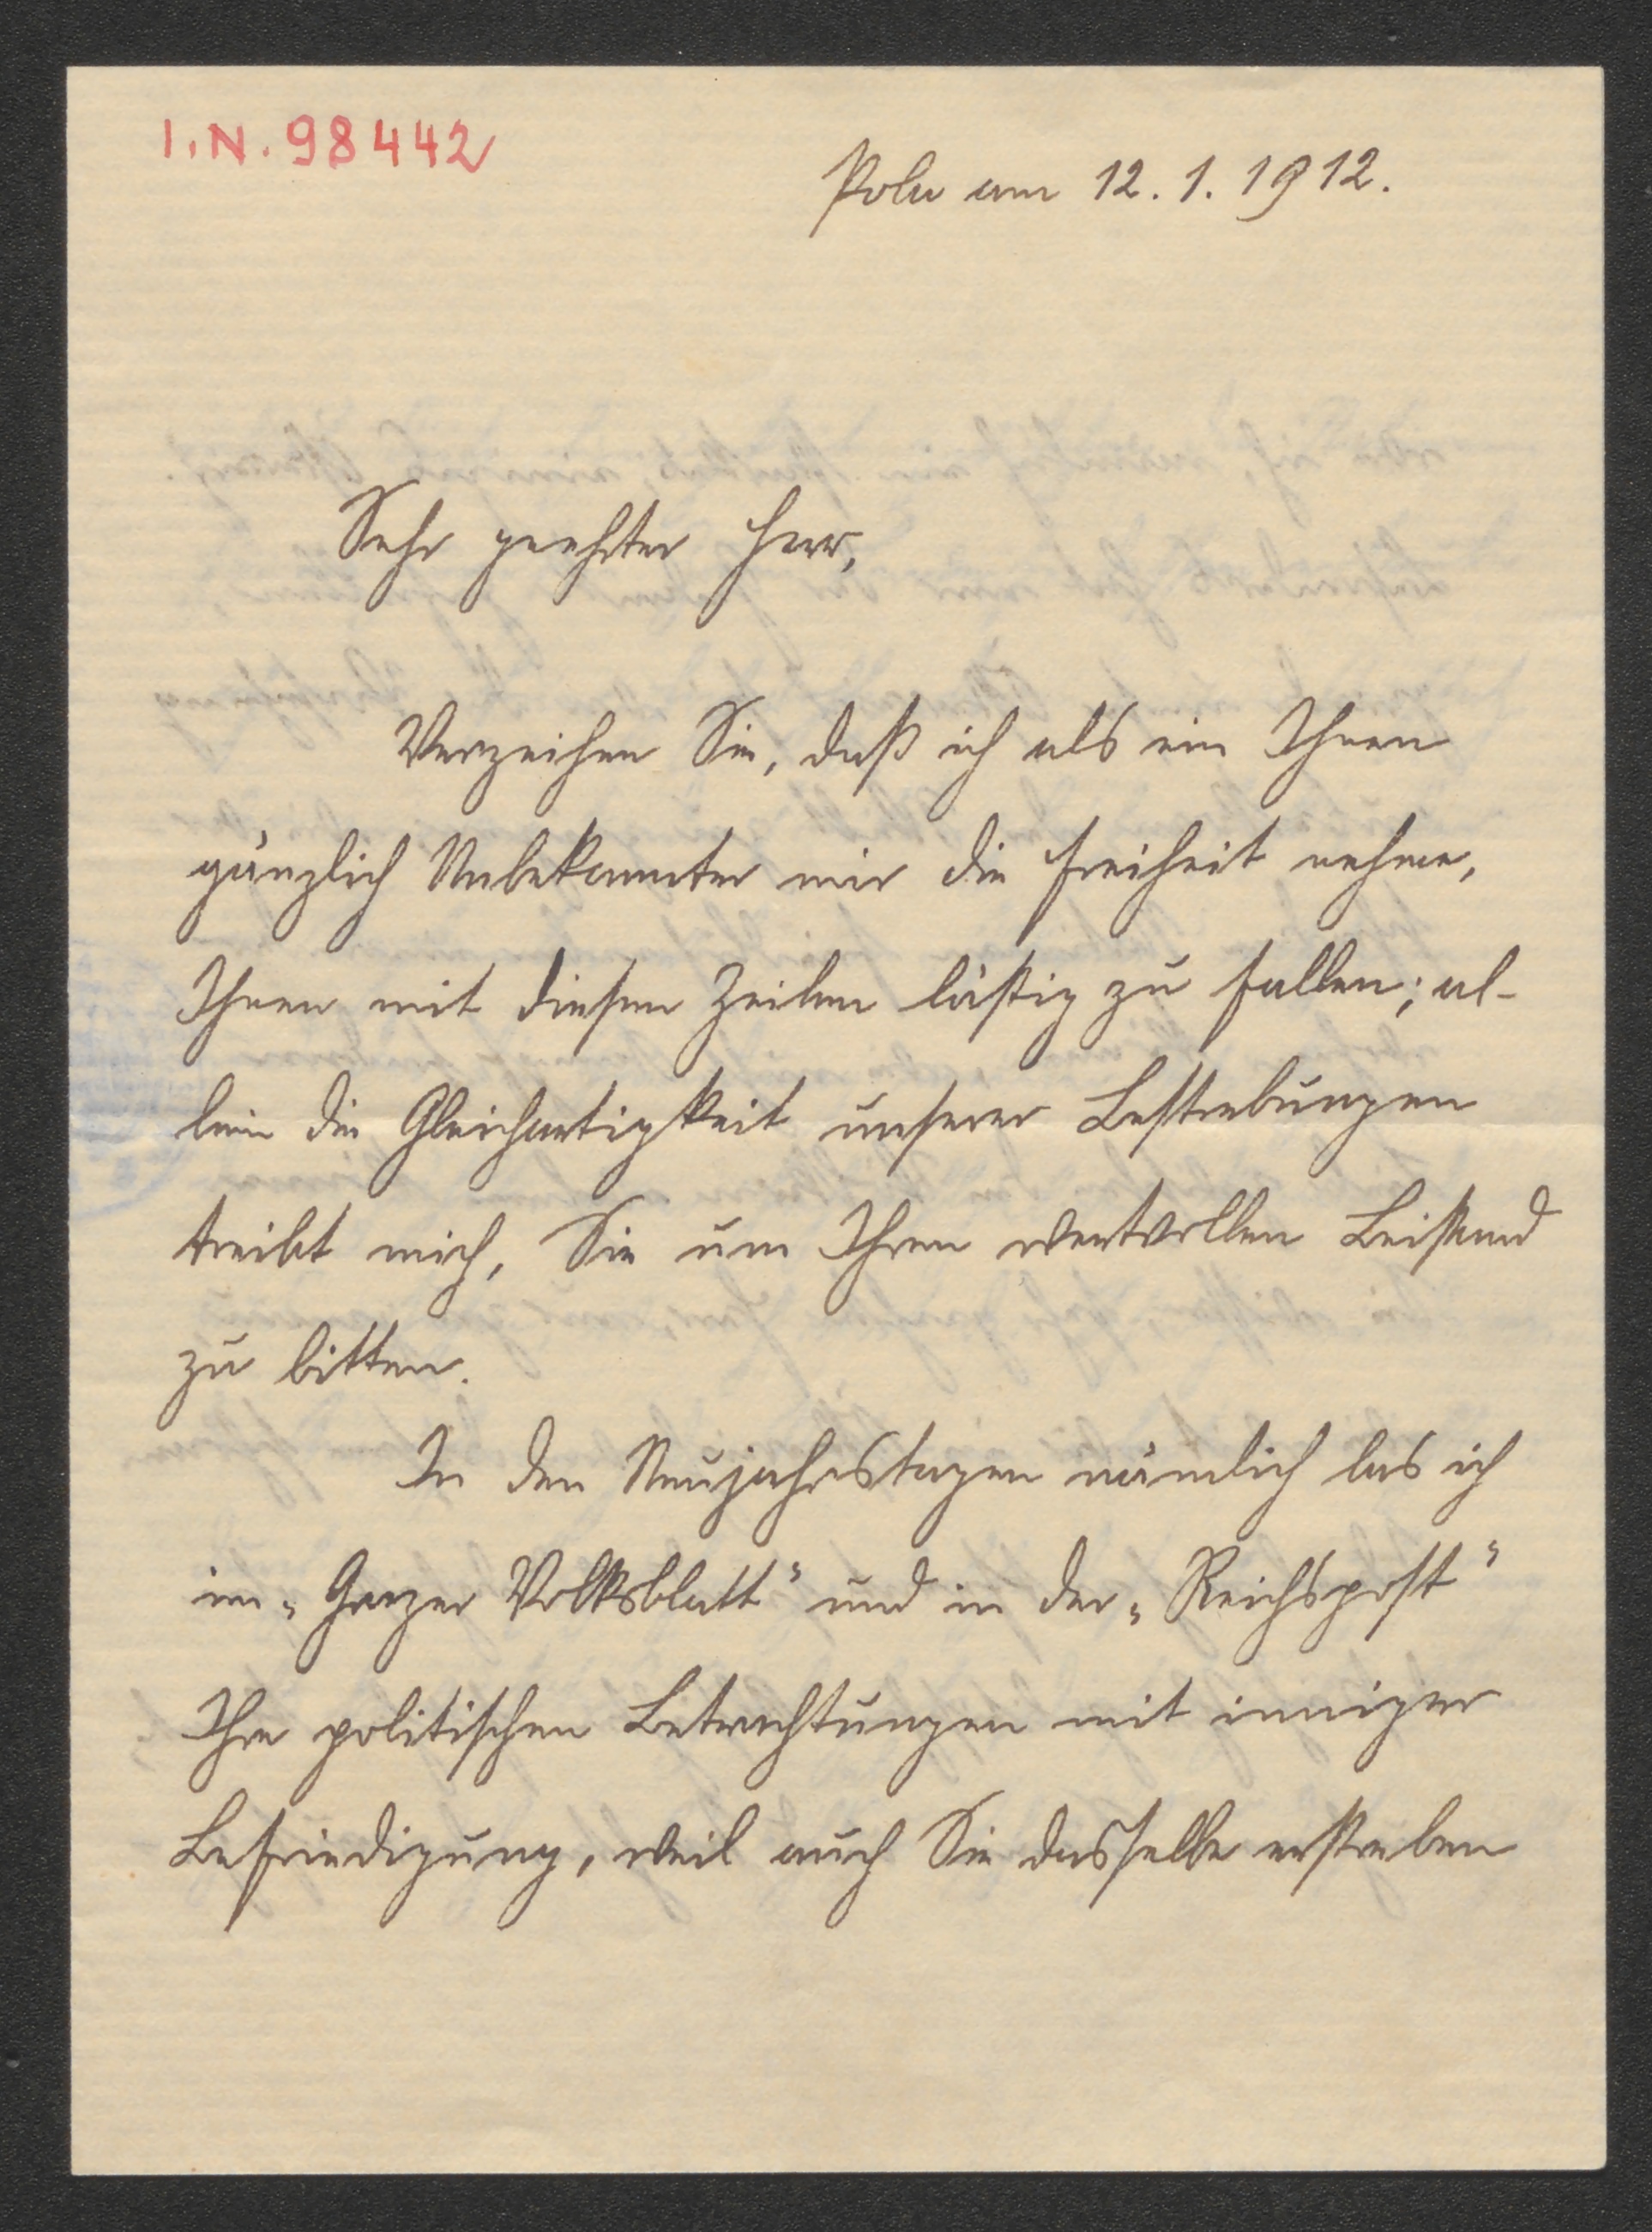 I.N. 98442
Pola am 12. 1. 1912.
Sehr geehrter Herr,
Verzeihen Sie, daß ich als ein Ihnen
gänzlich Unbekannter mir die Freiheit nehme,
Ihnen mit diesen Zeilen lästig zu fallen; al-
lein die Gleichartigkeit unserer Bestrebungen
treibt mich, Sie um Ihren wertvollen Beistand
zu bitten.
In den Neujahrstagen nämlich las ich
im „Grazer Volksblatt" und in der „Reichspost"
Ihre politischen Betrachtungen mit inniger
Befriedigung, weil auch Sie dasselbe erstreben